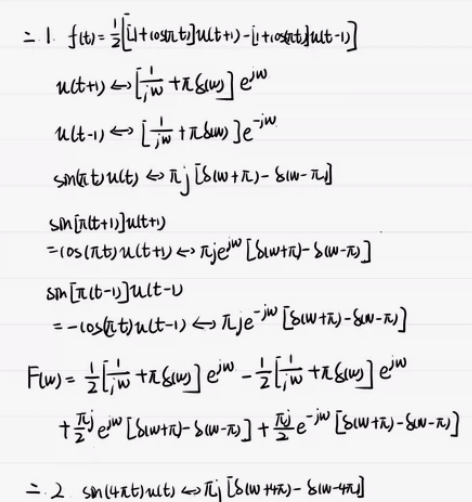 二 1. f(t)=½[[1+cosπt]u(t+1)-[1+cosπt]u(t-1)]
u(t+1) ↔ [1/jw + πδ(w)] e^{jw}
u(t-1) ↔ [1/jw + πδ(w)] e^{-jw}
sin(πt)u(t) ↔ πj [δ(w+π) - δ(w-π)]
sin[π(t+1)]u(t+1)
=cos(πt)u(t+1) ↔ πje^{jw} [δ(w+π)-δ(w-π)]
sin[π(t-1)]u(t-1)
= -cos(πt)u(t-1) ↔ πje^{-jw} [δ(w+π)-δ(w-π)]
F(w) = ½[1/jw + πδ(w)] e^{jw} - ½[1/jw + πδ(w)] e^{jw}
+ πj/2 e^{jw} [δ(w+π)-δ(w-π)] + πj/2 e^{-jw} [δ(w+π)-δ(w-π)]
二 2. sin(4πt)u(t) ↔ πj [δ(w+4π) - δ(w-4π)]